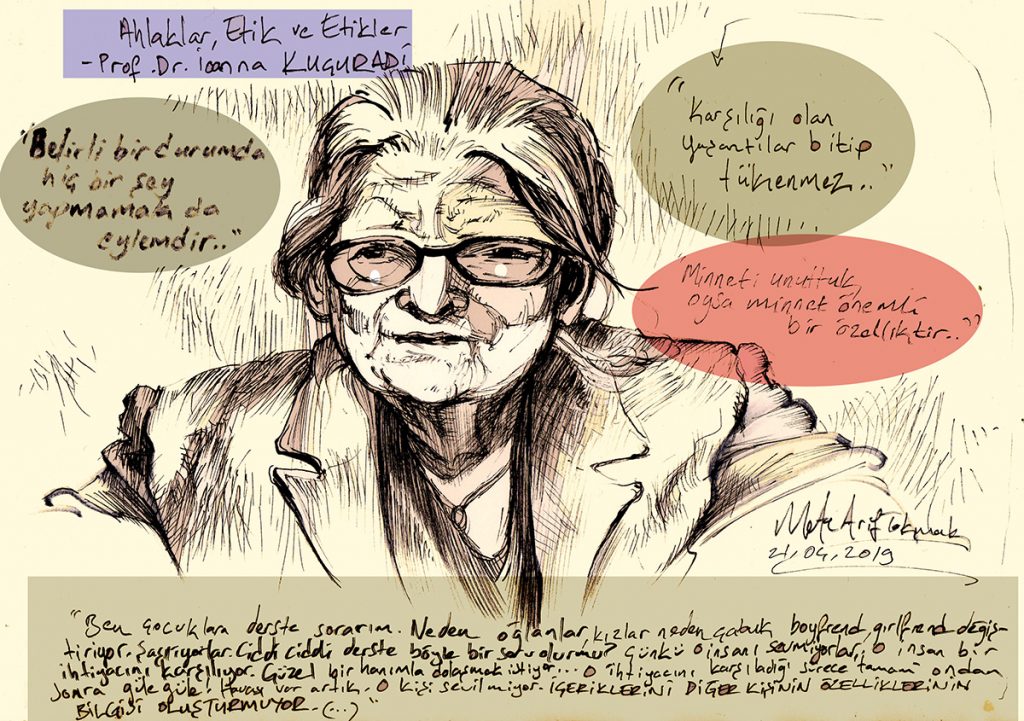 Ahlaklar, Etik ve Etikler
- Prof. Dr. İoanna KUÇURADİ
"Belirli bir durumda
hiç bir şey
yapmamak da
eylemdir.."
"Karşılığı olan
yaşantılar bitip
tükenmez.."
"Minneti unuttuk,
oysa minnet önemli
bir özelliktir.."
Mete Arif
21.04.2019
"Ben çocuklara derste sorarım. Neden oğlanlar, kızlar neden çabuk boyfrend, girlfrend değiş-
tiriyor. Şaşırıyorlar. Ciddi ciddi derste böyle bir soru olurmu? Çünkü o insanı sevmiyorlar, o insan bir
ihtiyacını karşılıyor. Güzel bir hanımla dolaşmak istiyor... O ihtiyacını karşıladığı sürece tamam ondan
sonra güle güle! var artık. O kişi sevilmiyor. İÇERİKLERİNİ DİĞER KİŞİNİN ÖZELLİKLERİNİN
BİLGİSİ OLUŞTURMUYOR. (...)"